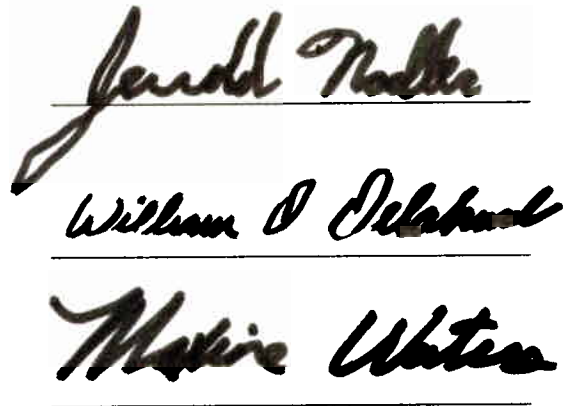 Jerrold Nadler
William D Delahunt
Maxine Waters